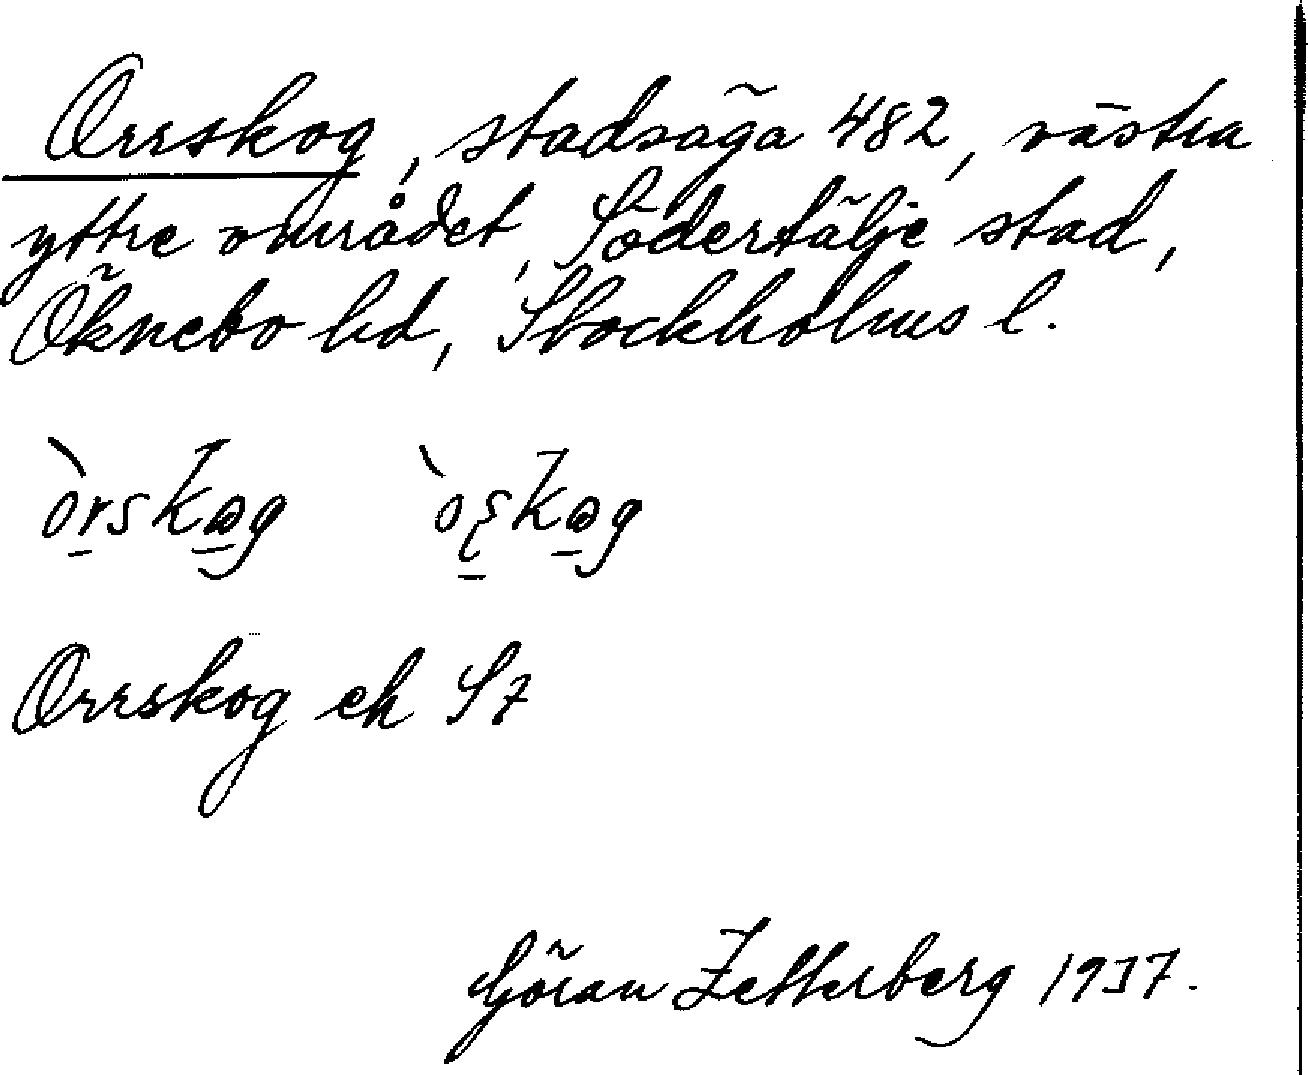 Orrskog, stadsäga 482, västra
yttre området, Södertälje stad,
Öknebo hd, Stockholms l.
Orrskog ek S7
Göran Zetterberg 1937.